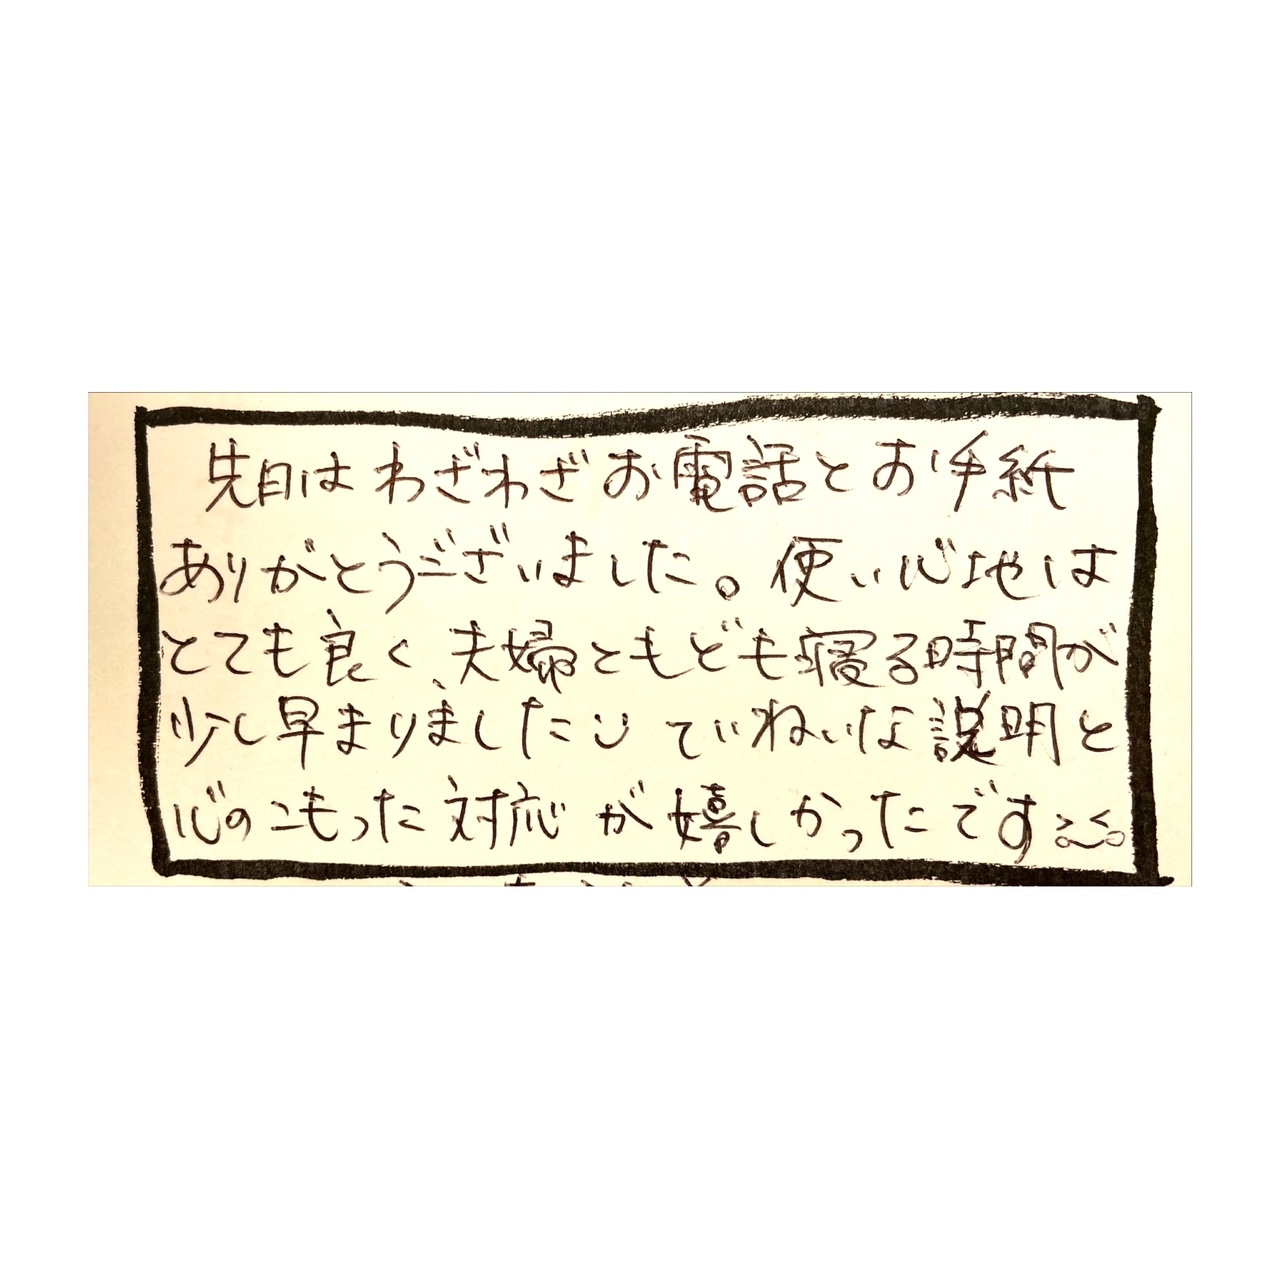 先日は わざわざ お電話と お手紙
ありがとうございました。使い心地は
とても良く、夫婦ともども寝る時間が
少し早まりました ていねいな説明と
心のこもった対応が嬉しかったです